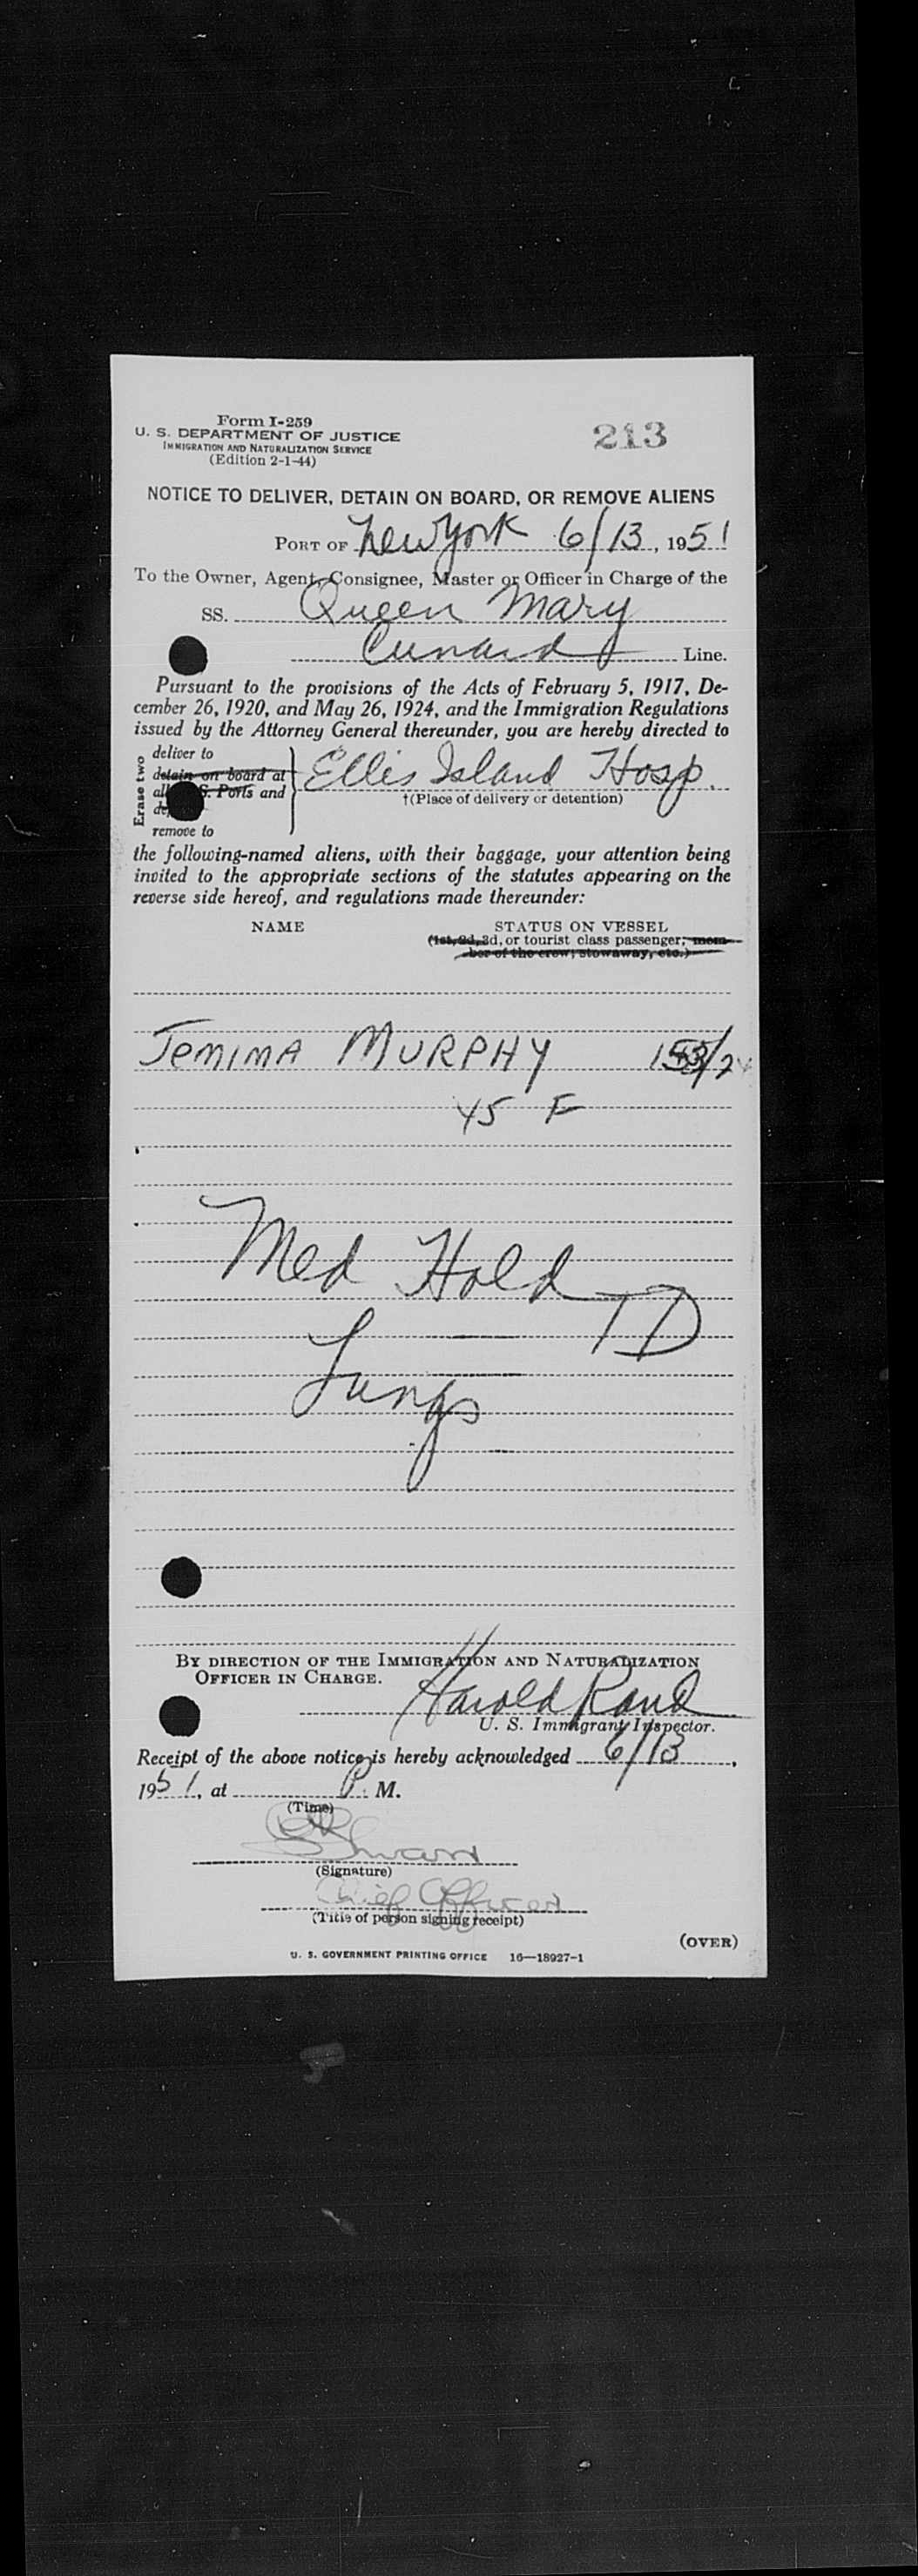 Form I-259
U. S. DEPARTMENT OF JUSTICE
IMMIGRATION AND NATURALIZATION SERVICE
(Edition 2-1-44)
213
NOTICE TO DELIVER, DETAIN ON BOARD, OR REMOVE ALIENS
PORT OF New York 6/13, 1951
To the Owner, Agent, Consignee, Master or Officer in Charge of the
SS. Queen Mary
Cunard Line.
Pursuant to the provisions of the Acts of February 5, 1917, De-
cember 26, 1920, and May 26, 1924, and the Immigration Regulations
issued by the Attorney General thereunder, you are hereby directed to
Erase two
deliver to
detain on board at
S. Ports and
remove to
Ellis Island Hosp.
†(Place of delivery or detention)
the following-named aliens, with their baggage, your attention being
invited to the appropriate sections of the statutes appearing on the
reverse side hereof, and regulations made thereunder:
NAME STATUS ON VESSEL
(1st, 2d, 3d, or tourist class passenger; mem-
ber of the crew; stowaway, etc.)
Jemima MURPHY
45 F
Med Hold
TD
Lungs
BY DIRECTION OF THE IMMIGRATION AND NATURALIZATION
OFFICER IN CHARGE.
Harold Rand
U. S. Immigrant Inspector.
Receipt of the above notice is hereby acknowledged 6/13,
1951, at P. M.
(Time)
(Signature)
Chief Officer
(Title of person signing receipt)
(OVER)
U. S. GOVERNMENT PRINTING OFFICE 16—18927-1